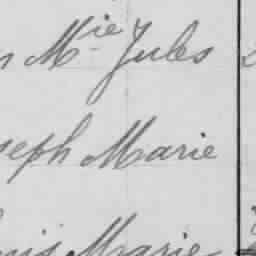 Mie Jules
seph Marie
Marie